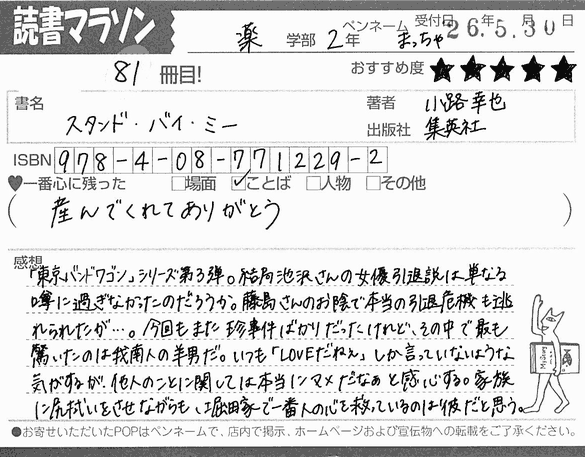 読書マラソン
薬 学部 2年 ペンネーム まっちゃ 受付日 26年5月30日
81 冊目! おすすめ度 ★★★★★
書名 スタンド・バイ・ミー
著者 小路幸也
出版社 集英社
ISBN 978-4-08-771229-2
♥一番心に残った □場面 ☑ことば □人物 □その他
(産んでくれてありがとう)
感想
「東京バンドワゴン」シリーズ第3弾。結局池沢さんの女優引退説は単なる
噂に過ぎなかったのだろうか。藤島さんのお陰で本当の引退危機も逃
れられたが…。今回もまた珍事件ばかりだったけれど、その中で最も
驚いたのは我南人の羊男だ。いつも「LOVEだねぇ」しか言っていないような
気がするが、他人のことに関しては本当にマメだなぁと感心する。家族
に尻拭いをさせながらも、堀田家で一番人の心を救っているのは彼だと思う。
●お寄せいただいたPOPはペンネームで、店内で掲示、ホームページおよび宣伝物への転載をご了承ください。